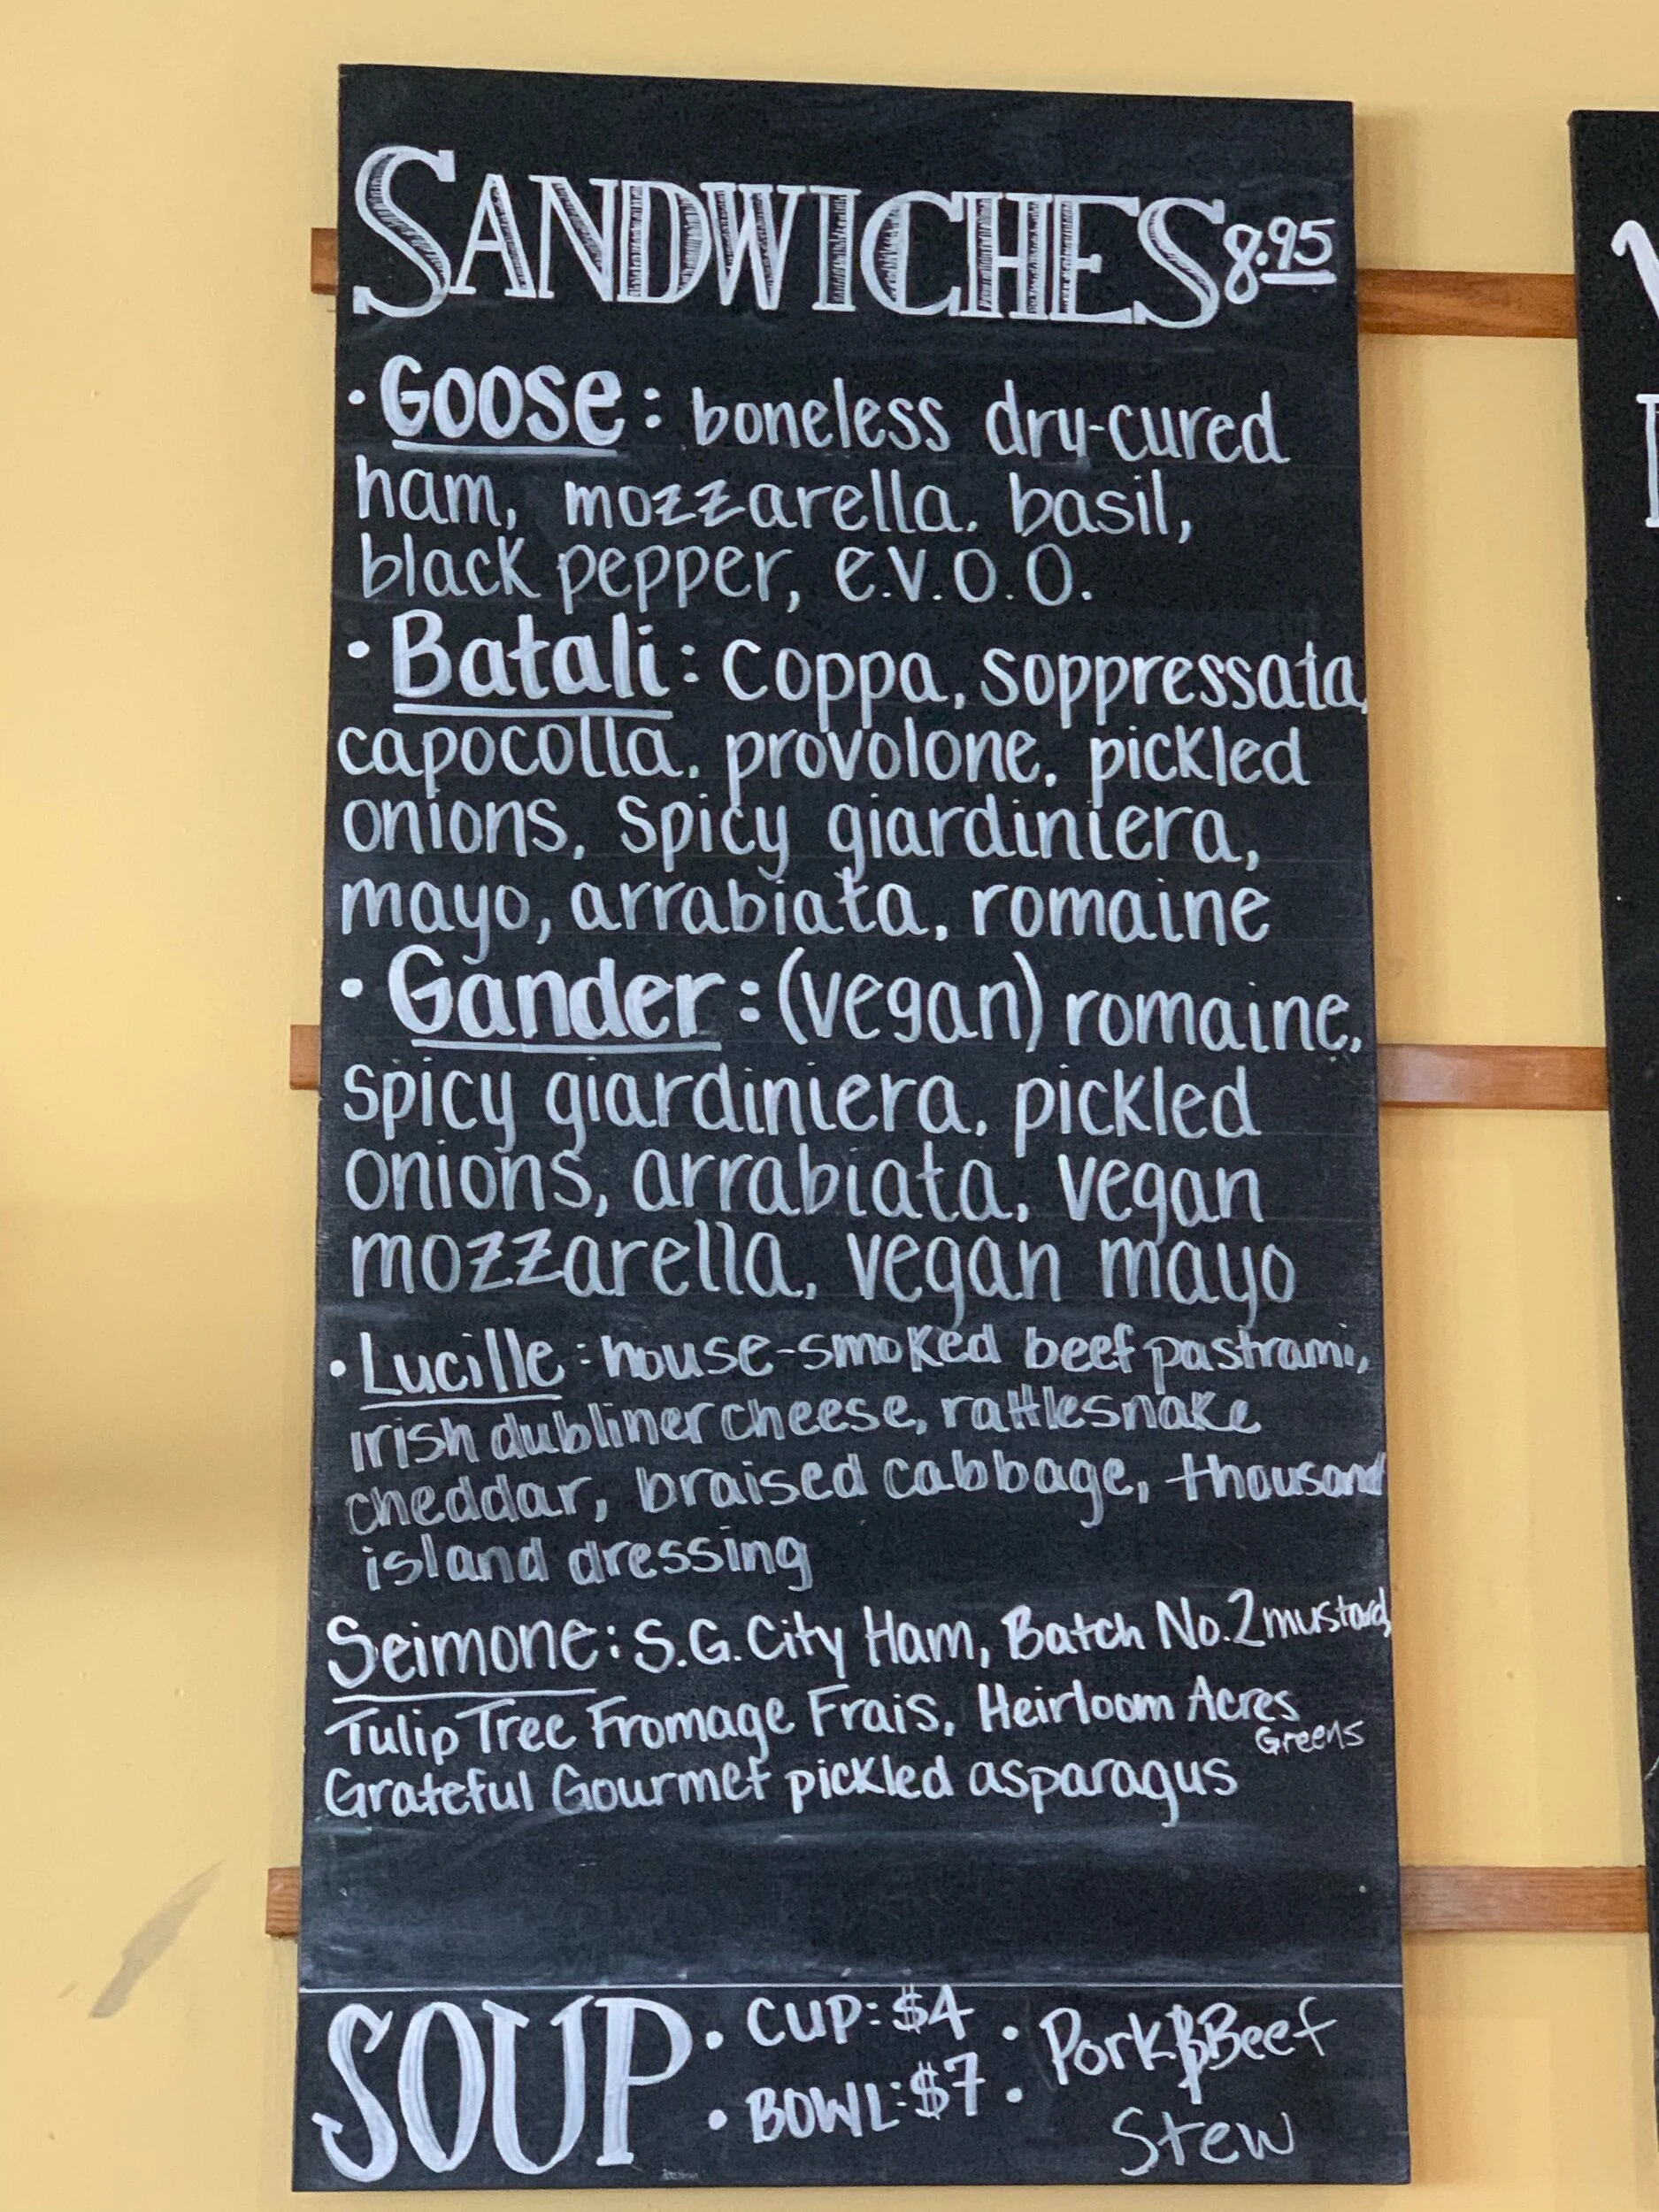 SANDWICHES 8.95
• Goose: boneless dry-cured
ham, mozzarella, basil,
black pepper, e.v.o.o.
• Batali: coppa, soppressata,
capocolla, provolone, pickled
onions, spicy giardiniera,
mayo, arrabiata, romaine
• Gander: (vegan) romaine,
spicy giardiniera, pickled
onions, arrabiata, vegan
mozzarella, vegan mayo
• Lucille: house-smoked beef pastrami,
irish dubliner cheese, rattlesnake
cheddar, braised cabbage, thousand
island dressing
Seimone: S.G. City Ham, Batch No. 2 mustard,
Tulip Tree Fromage Frais, Heirloom Acres
Greens
Grateful Gourmet pickled asparagus
SOUP • CUP: $4 • Pork & Beef
• BOWL: $7 • Stew